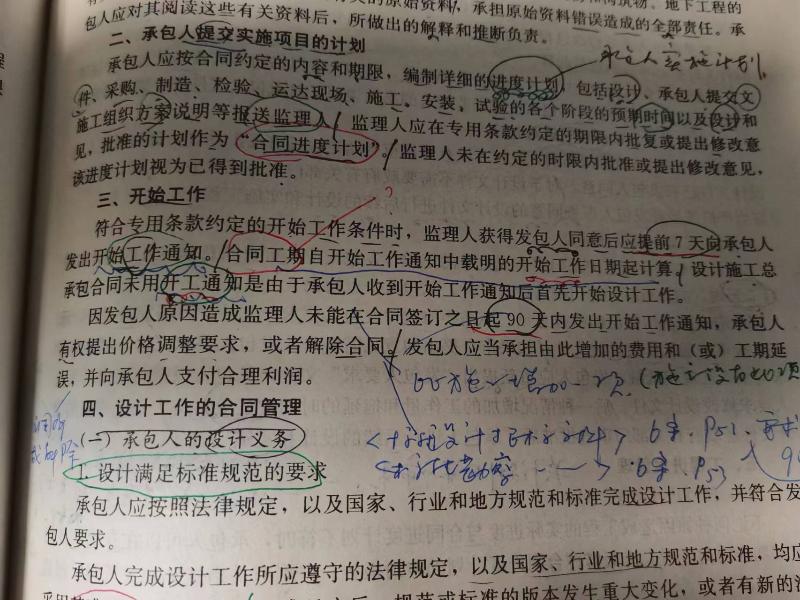 的原始资料，承担原始资料错误造成的全部责任。承
包人应对其阅读这些有关资料后，所做出的解释和推断负责。
二、承包人提交实施项目的计划
承包人实施计划
承包人应按合同约定的内容和期限，编制详细的进度计划，包括设计、承包人提交文
件、采购、制造、检验、运达现场、施工、安装、试验的各个阶段的预期时间以及设计和
施工组织方案说明等报送监理人。监理人应在专用条款约定的期限内批复或提出修改意
见，批准的计划作为“合同进度计划”。监理人未在约定的时限内批准或提出修改意见，
该进度计划视为已得到批准。
三、开始工作
?
符合专用条款约定的开始工作条件时，监理人获得发包人同意后应提前7天向承包人
发出开始工作通知。合同工期自开始工作通知中载明的开始工作日期起计算。设计施工总
承包合同未用开工通知是由于承包人收到开始工作通知后首先开始设计工作。
因发包人原因造成监理人未能在合同签订之日起90天内发出开始工作通知，承包人
有权提出价格调整要求，或者解除合同。发包人应当承担由此增加的费用和（或）工期延
误，并向承包人支付合理利润。
比施工增加一项
四、设计工作的合同管理
（一）承包人的设计义务
6章 P51
1. 设计满足标准规范的要求
6章 P53
承包人应按照法律规定，以及国家、行业和地方规范和标准完成设计工作，并符合发
包人要求。
承包人完成设计工作所应遵守的法律规定，以及国家、行业和地方规范和标准，均应
规范或标准的版本发生重大变化，或者有新的法